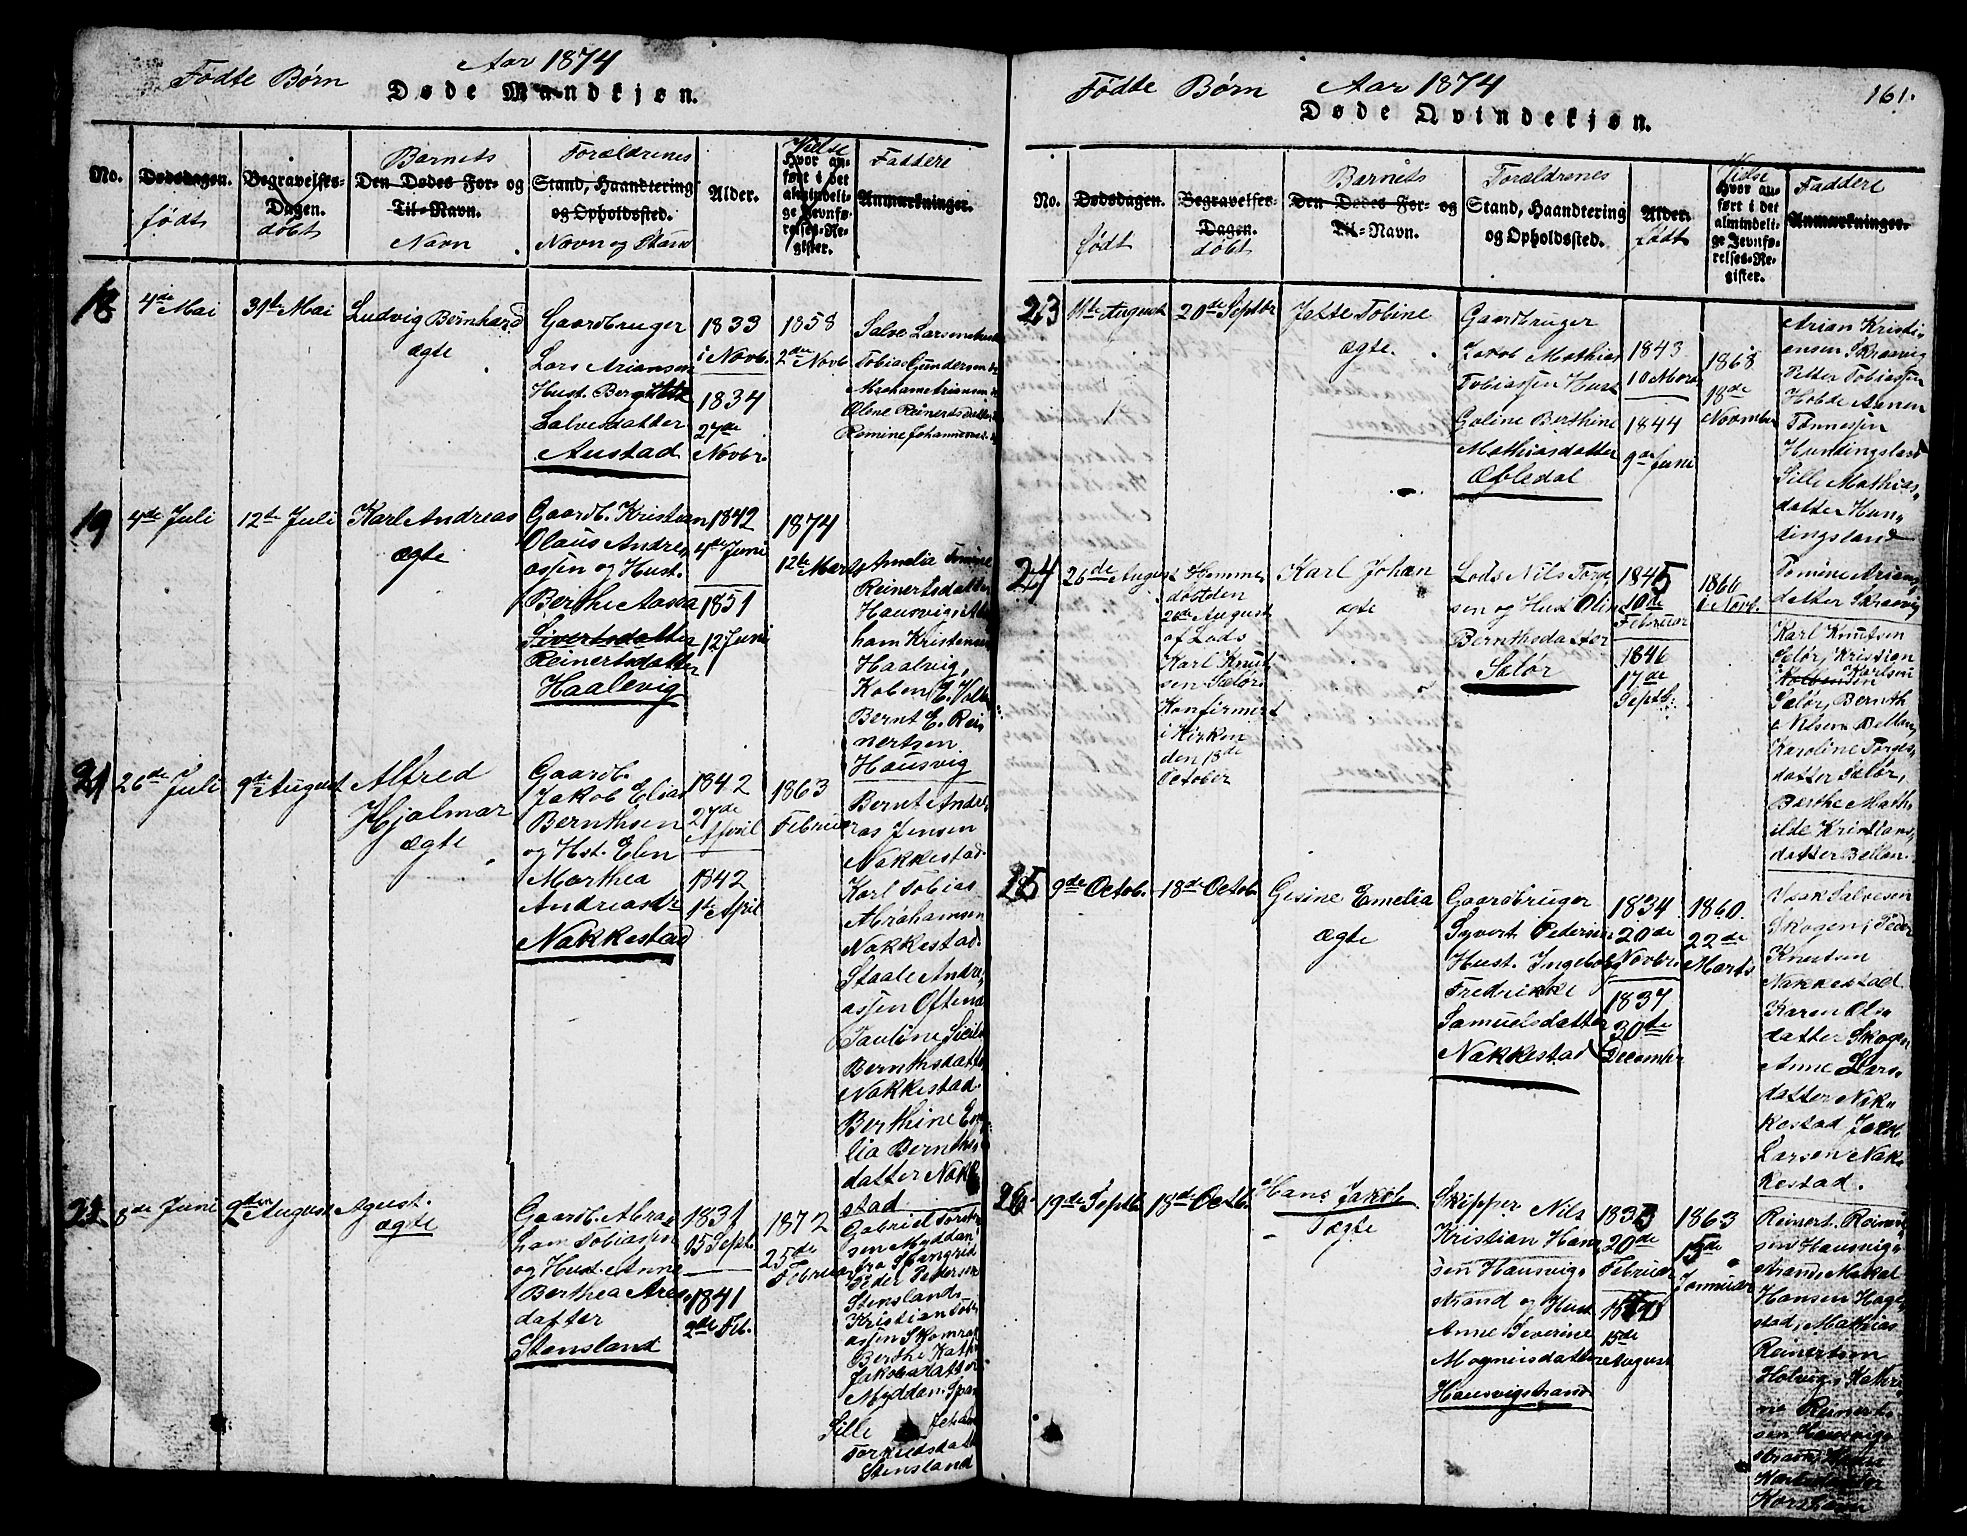 Aar 1874
Fødte Børn
Døde Mandkjøn.
No.
Dødsdagen.
født
Begravelses-
Dagen.
døbt
Barnets
Den Dødes For- og
Til-Navn.
Navn
Forældrenes
Stand, Haandtering
og Opholdssted.
Navn og Stand
Alder.
Vielse
Hvor an-
ført i det
almindeli-
ge Jevnfø-
relses-Re-
gister.
Faddere
Anmærkninger.
18
4de Mai
31te Mai
Ludvig Bernhard
ægte
Gaardbruger
Lars Ariansen
Hust. Bergitte
Salvesdatter
Austad
1833
i Novb.
1834
27de
Novbr.
1858
2den Novb
Tobias Gundersen
Olene Reinertsdatter
19
4de Juli
12te Juli
Karl Andreas
ægte
Gaardb. Kristian
Olaus Andre,
assen og Hust.
Berthe Aasea
Sivertsdatter
Reinertsdatter
Haalevig
1842
4de Juni
1851
12 Juni
1874
12te Marts
Amelia Tomine
Reinertsdatter
Hausvig
ham Kristensen
Haalvig,
Bernt E. Rei
nertsen
Hausvig
21
26de Juli
9de August
Alfred
Hjalmar
ægte
Gaardb.
Jakob Elias
Bernthsen
og Hst. Elen
Marthea
Andreasdr
Nakkestad
1842
27de
April
1842
1te April
1863
Februar
Bernt Andre,
as Jensen
Nakkestad
Karl Tobias
Abrahamsen
Nakkestad
Staale Andre,
assen Oftenes
Pauline Sicil
Bernthsdatter
Nakkestad.
Berthine Em
lia Bernths,
datter Nakke
stad
22
8de Juni
9den August
Agust.
ægte
Gaardb. Abra
ham Tobiassen
og Hust. Anne
Berthea Ares
datter
Stensland
1831
15 Septb.
1841
2de Feb.
1872
25de
Februar
Gabriel Torki
sen Myddan
fra Spangrid
Peder Pedersen
Stensland,
Kristian Tobi
assen Skomrak
Berthe Kath
Jakobsdatter
Myddan, Span
Sille
Torkildsdatt
Stensland
Fødte Børn
Aar 1874
161.
Døde Qvindekjøn.
No.
Dødsdagen.
født
Begravelses-
Dagen.
døbt
Barnets
Den Dødes For- og
Til-Navn.
Forældrenes
Stand, Haandtering
og Opholdssted.
Alder.
født
Vielse
Hvor an-
ført i det
almindeli-
ge Jevnfø-
relses-Re-
gister.
Faddere
Anmærkninger.
23
11te August
20de Septbr
Jette Tobine
ægte.
Gaardbruger
Jakob Mathias
Tobiassen Hust
Goline Berthine
Mathiasdatter
Øfledal
1843
10 Mars
1844
9de Juni
1868
18de
November
Arian Kristi,
ansen Skraavig
Petter Tobiassen
Tønnessen
Hundingsland
Sille Mathias,
datter Hun,
dingsland
Tomine Arians
datter Skraavig
24
26de August
Hjemme
døbt den
26de August
af Lods
Karl Knut
sen Sælør
Konfirmert
i Kirken
den 18de
October
Karl Johan
ægte
Lods Nils Torge
sen og Hust Olin
Bernthsdatter
Sælør
1845
10de
Februar
1846
17de
Septb.
1866
1 Novb.
Karl Knutsen
Sælør, Kristian
Karlsen
Sælør, Bernth
Nilsen Bellan,
Karoline Torges,
datter Sælør,
Berthe Math
ilde Kristians,
datter Bellan.
25
9de Octob.
18de Octob.
Gesine Emelia
ægte
Gaardbruger
Syvert Pedersen
Hust. Ingebor
Fredrikke
Samuelsdatter
Nakkestad
1834
20de
Novbr.
1837
30te
December
1860.
22de
Marts
Isak Salvesen
Skogen, Peder
Knutsen
Nakkestad
Karen Ols
datter Skogen
Anne Lars,
datter Nak,
kestad Jakob
Larsen Nak,
kestad.
26
19de Septb.
18de Octb.
Hans Jakob
ægte
Skipper Nils
Kristian Hans
sen Hausvig,
strand og Hust
Anne Severine
Mogneisdatter
Hausvigstrand
1833
20de
Februar
15de
August
1863
15de
Januar
Reinert Reinert
sen Hausvig,
strand, Mikal
Hansen Hage
stad, Mathias
Reinertsen
Hølvig, Kathri
ne Reinert
sen Hausvig,
strand
Korshavn